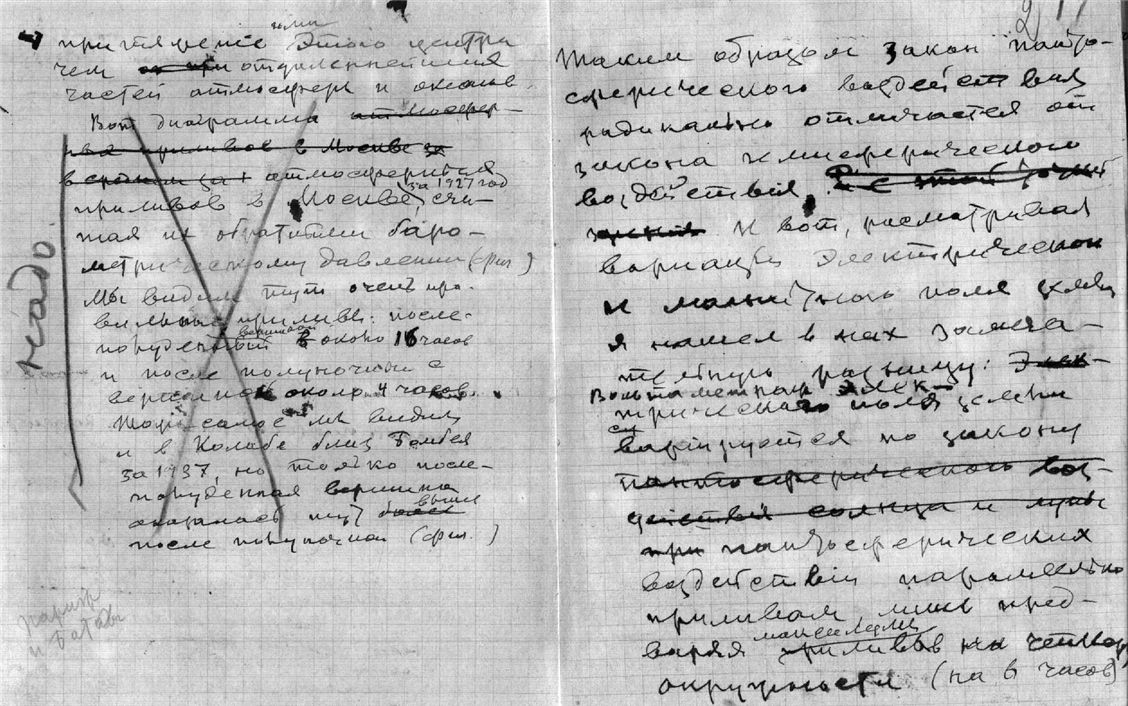 ими
притяжение этого центра
чем отдаленнейшия
частей атмосферы и океанов.
Вот диаграмма атмосфер-
ных приливов в Москве за
в среднем за атмосферных
за 1927 год
приливов в Москве, счи-
тая их обратными баро-
метрическому давлению (фиг )
Мы видим тут очень пра-
вильные приливы: после-
вершиной
полуденный в около 16 часов
и после полуночный с
вершиной около 4 часов.
Тоже самое мы видим
и в Колабе близ Бомбея
за 1937, но только после-
полуденная вершина
выше
оказалась тут более
после полуночной (фиг. )
надо
и Батав
2
Таким образом закон панто-
сферического воздействия
радикально отличается от
закона гемисферического
воздействия. С этой точки
зрения И вот, рассматривая
вариации электрическои
и магнитного поля земли
я нашел в них замеча-
тельную разницу: Элек-
Вольтаметраж элек-
трическаго поля земли
варируется по закону
пантосферического воз-
действия солнца и луны
при пантосферических
воздействии параллельно
приливам лишь пред-
максимумы
варяя приливов на четверть
окружности (на 6 часов)